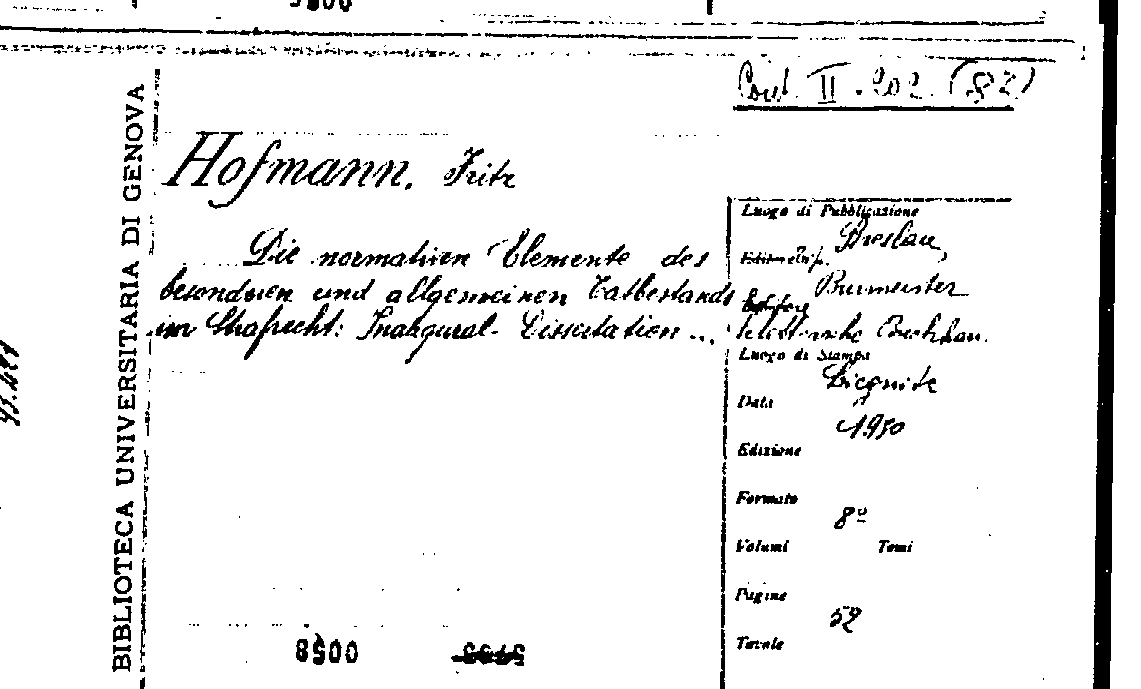 Cont. II. 202. (82)
BIBLIOTECA UNIVERSITARIA DI GENOVA
Hofmann, Fritz
Die normativen Elemente des
besonderen und allgemeinen Tatbestands
im Strafrecht: Inaugural-Dissertation ...
Luogo di Pubblicazione
Breslau,
Burmeister
Luogo di Stampa
Liegnitz
Data
1930
Edizione
Formato
8º
Volumi Tomi
Pagine
52
Tavole
0058